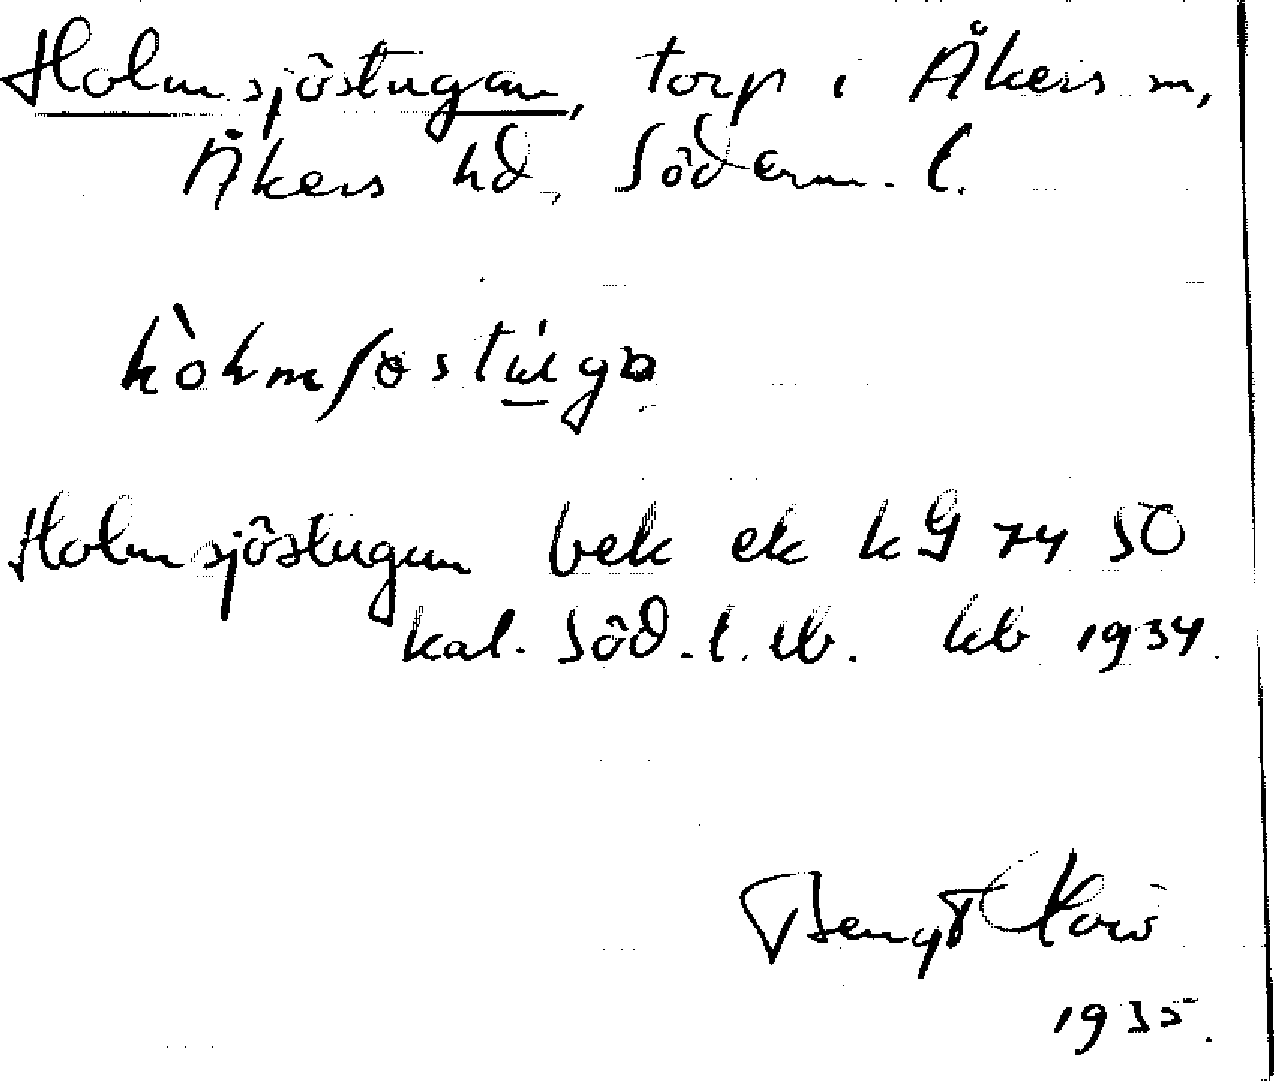 Holmsjöstugan, torp i Åkers sn,
Åkers hd, Söderm. l.
Holmsjöstugan bek ek kG 74 SO
kal. Söd. l. lb. kb 1934.
Bengt
1935.